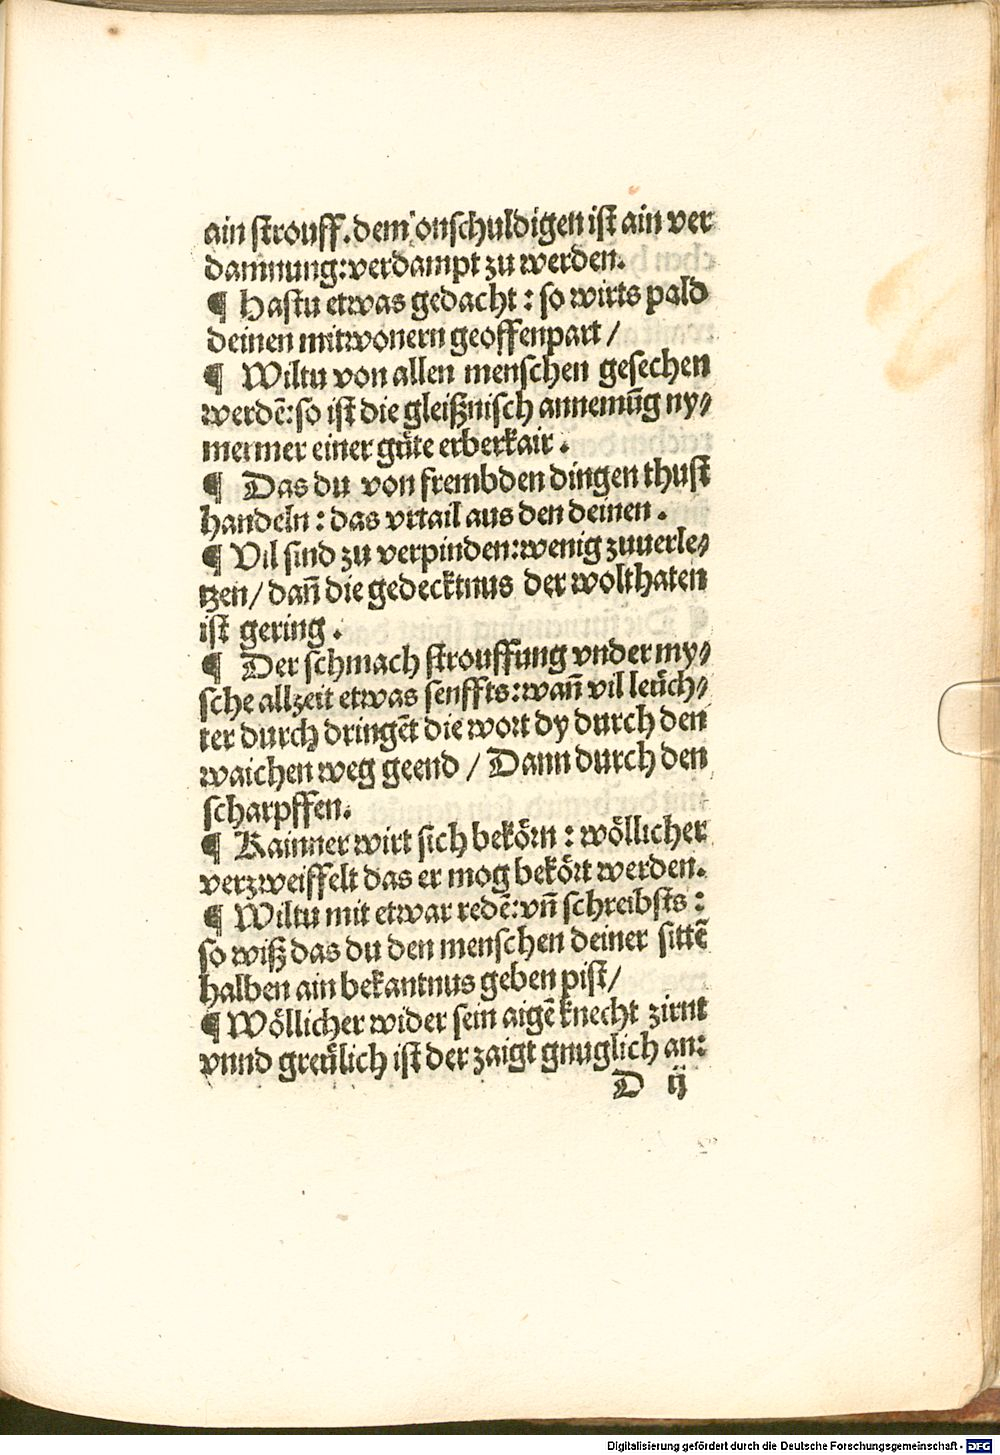 ain strouff. dem onschuldigen ist ain ver
damnung: verdampt zu werden.
¶ Hastu etwas gedacht: so wirts pald
deinen mitwonern geoffenpart/
¶ Wiltu von allen menschen gesechen
werdē: so ist die gleißnisch annemūg ny⸗
mermer einer gůte erberkait.
¶ Das du von frembden dingen thust
handeln: das vrtail aus den deinen.
¶ Vil sind zu verpinden: wenig zuuerle⸗
tzen/ dañ die gedecktnus der wolthaten
ist gering.
¶ Der schmach strouffung vnder my⸗
sche allzeit etwas senffts: wañ vil leüch⸗
ter durch dringēt die wort dy durch den
waichen weg geend/ Dann durch den
scharpffen.
¶ Kainner wirt sich bekörn: wöllicher
verzweiffelt das er mog bekört werden.
¶ Wiltu mit etwar redē: vñ schreibsts:
so wiß das du den menschen deiner sittē
halben ain bekantnus geben pist/
¶ Wöllicher wider sein aigē knecht zirnt
vnnd greülich ist der zaigt gnuglich an:
D ij
Digitalisierung gefördert durch die Deutsche Forschungsgemeinschaft - DFG